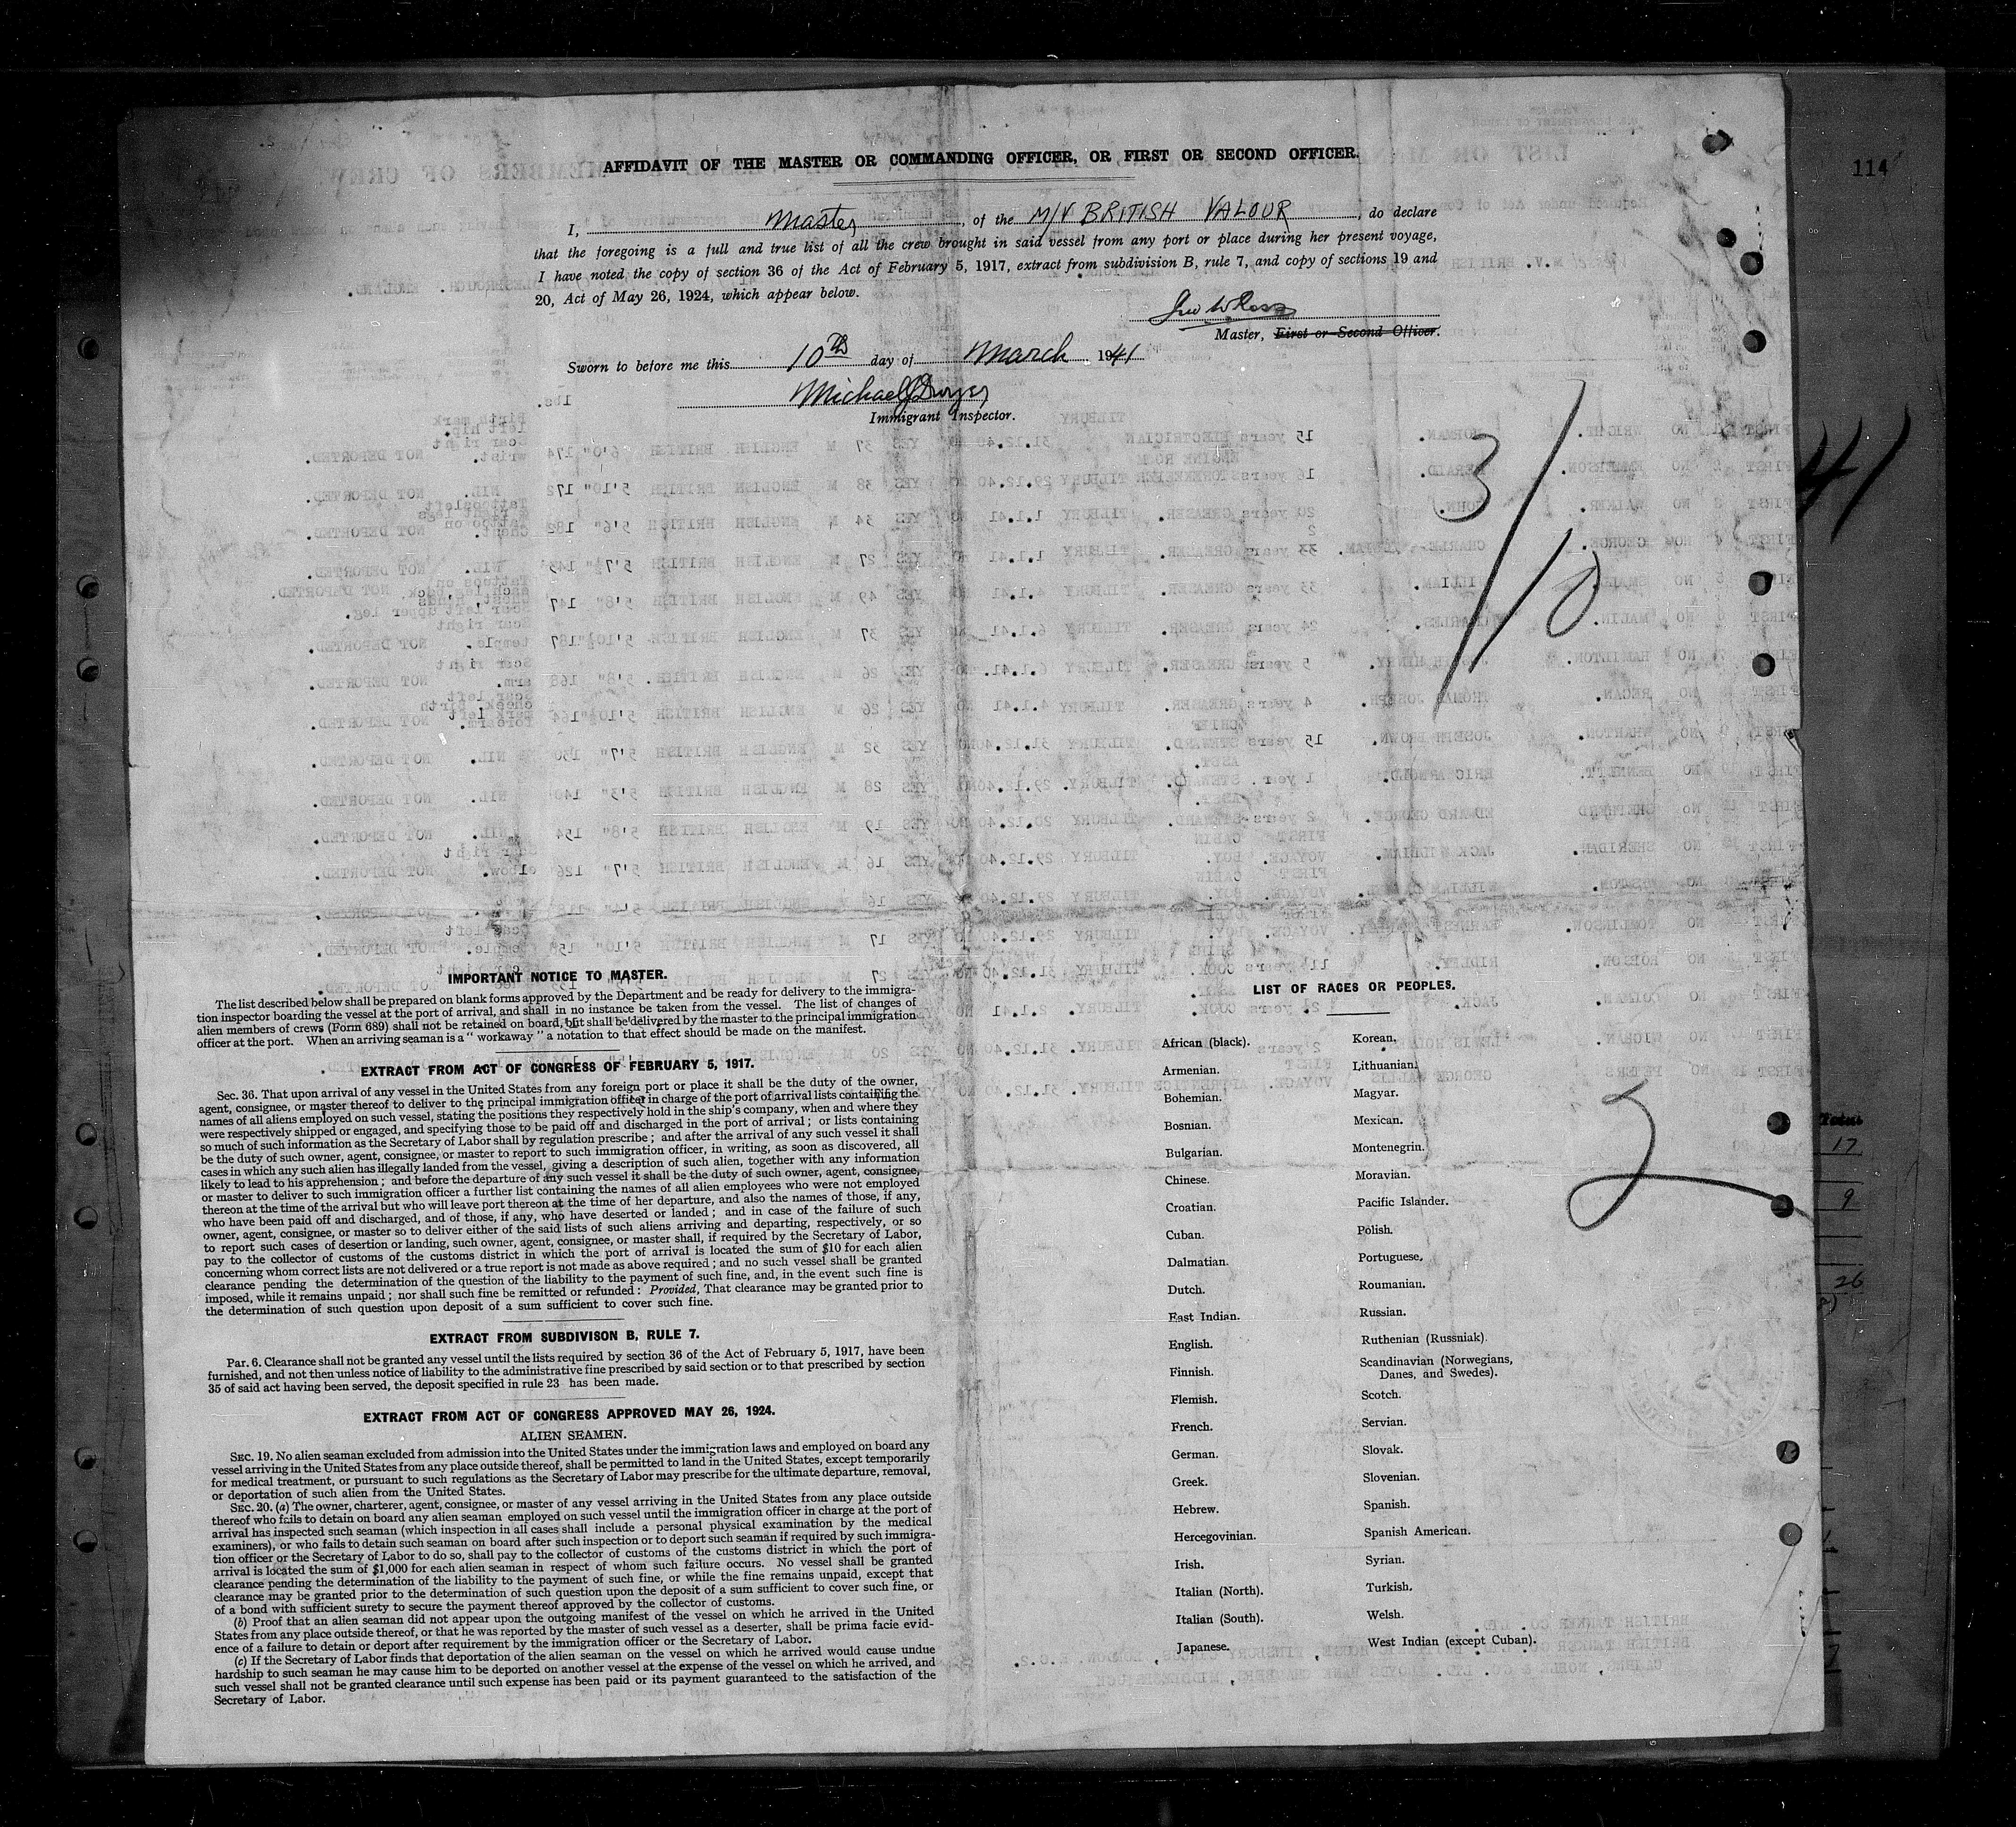 114
AFFIDAVIT OF THE MASTER OR COMMANDING OFFICER, OR FIRST OR SECOND OFFICER.
I, Master, of the M/V BRITISH VALOUR, do declare
that the foregoing is a full and true list of all the crew brought in said vessel from any port or place during her present voyage,
I have noted the copy of section 36 of the Act of February 5, 1917, extract from subdivision B, rule 7, and copy of sections 19 and
20, Act of May 26, 1924, which appear below.
Master, First or Second Officer.
Sworn to before me this 10th day of March 1941
Michael
Immigrant Inspector.
3/10/41
IMPORTANT NOTICE TO MASTER.
The list described below shall be prepared on blank forms approved by the Department and be ready for delivery to the immigra-
tion inspector boarding the vessel at the port of arrival, and shall in no instance be taken from the vessel. The list of changes of
alien members of crews (Form 689) shall not be retained on board, but shall be delivered by the master to the principal immigration
officer at the port. When an arriving seaman is a "workaway" a notation to that effect should be made on the manifest.
EXTRACT FROM ACT OF CONGRESS OF FEBRUARY 5, 1917.
Sec. 36. That upon arrival of any vessel in the United States from any foreign port or place it shall be the duty of the owner,
agent, consignee, or master thereof to deliver to the principal immigration officer in charge of the port of arrival lists containing the
names of all aliens employed on such vessel, stating the positions they respectively hold in the ship's company, when and where they
were respectively shipped or engaged, and specifying those to be paid off and discharged in the port of arrival; or lists containing
so much of such information as the Secretary of Labor shall by regulation prescribe; and after the arrival of any such vessel it shall
be the duty of such owner, agent, consignee, or master to report to such immigration officer, in writing, as soon as discovered, all
cases in which any such alien has illegally landed from the vessel, giving a description of such alien, together with any information
likely to lead to his apprehension; and before the departure of any such vessel it shall be the duty of such owner, agent, consignee,
or master to deliver to such immigration officer a further list containing the names of all alien employees who were not employed
thereon at the time of the arrival but who will leave port thereon at the time of her departure, and also the names of those, if any,
who have been paid off and discharged, and of those, if any, who have deserted or landed; and in case of the failure of such
owner, agent, consignee, or master so to deliver either of the said lists of such aliens arriving and departing, respectively, or so
to report such cases of desertion or landing, such owner, agent, consignee, or master shall, if required by the Secretary of Labor,
pay to the collector of customs of the customs district in which the port of arrival is located the sum of $10 for each alien
concerning whom correct lists are not delivered or a true report is not made as above required; and no such vessel shall be granted
clearance pending the determination of the question of the liability to the payment of such fine, and, in the event such fine is
imposed, while it remains unpaid; nor shall such fine be remitted or refunded: Provided, That clearance may be granted prior to
the determination of such question upon deposit of a sum sufficient to cover such fine.
EXTRACT FROM SUBDIVISON B, RULE 7.
Par. 6. Clearance shall not be granted any vessel until the lists required by section 36 of the Act of February 5, 1917, have been
furnished, and not then unless notice of liability to the administrative fine prescribed by said section or to that prescribed by section
35 of said act having been served, the deposit specified in rule 23 has been made.
EXTRACT FROM ACT OF CONGRESS APPROVED MAY 26, 1924.
ALIEN SEAMEN.
Sec. 19. No alien seaman excluded from admission into the United States under the immigration laws and employed on board any
vessel arriving in the United States from any place outside thereof, shall be permitted to land in the United States, except temporarily
for medical treatment, or pursuant to such regulations as the Secretary of Labor may prescribe for the ultimate departure, removal,
or deportation of such alien from the United States.
Sec. 20. (a) The owner, charterer, agent, consignee, or master of any vessel arriving in the United States from any place outside
thereof who fails to detain on board any alien seaman employed on such vessel until the immigration officer in charge at the port of
arrival has inspected such seaman (which inspection in all cases shall include a personal physical examination by the medical
examiners), or who fails to detain such seaman on board after such inspection or to deport such seaman if required by such immigra-
tion officer or the Secretary of Labor to do so, shall pay to the collector of customs of the customs district in which the port of
arrival is located the sum of $1,000 for each alien seaman in respect of whom such failure occurs. No vessel shall be granted
clearance pending the determination of the liability to the payment of such fine, or while the fine remains unpaid, except that
clearance may be granted prior to the determination of such question upon the deposit of a sum sufficient to cover such fine, or
of a bond with sufficient surety to secure the payment thereof approved by the collector of customs.
(b) Proof that an alien seaman did not appear upon the outgoing manifest of the vessel on which he arrived in the United
States from any place outside thereof, or that he was reported by the master of such vessel as a deserter, shall be prima facie evid-
ence of a failure to detain or deport after requirement by the immigration officer or the Secretary of Labor.
(c) If the Secretary of Labor finds that deportation of the alien seaman on the vessel on which he arrived would cause undue
hardship to such seaman he may cause him to be deported on another vessel at the expense of the vessel on which he arrived, and
such vessel shall not be granted clearance until such expense has been paid or its payment guaranteed to the satisfaction of the
Secretary of Labor.
LIST OF RACES OR PEOPLES.
African (black).
Armenian.
Bohemian.
Bosnian.
Bulgarian.
Chinese.
Croatian.
Cuban.
Dalmatian.
Dutch.
East Indian.
English.
Finnish.
Flemish.
French.
German.
Greek.
Hebrew.
Hercegovinian.
Irish.
Italian (North).
Italian (South).
Japanese.
Korean.
Lithuanian.
Magyar.
Mexican.
Montenegrin.
Moravian.
Pacific Islander.
Polish.
Portuguese.
Roumanian.
Russian.
Ruthenian (Russniak).
Scandinavian (Norwegians,
Danes, and Swedes).
Scotch.
Servian.
Slovak.
Slovenian.
Spanish.
Spanish American.
Syrian.
Turkish.
Welsh.
West Indian (except Cuban).
2
17
9
26